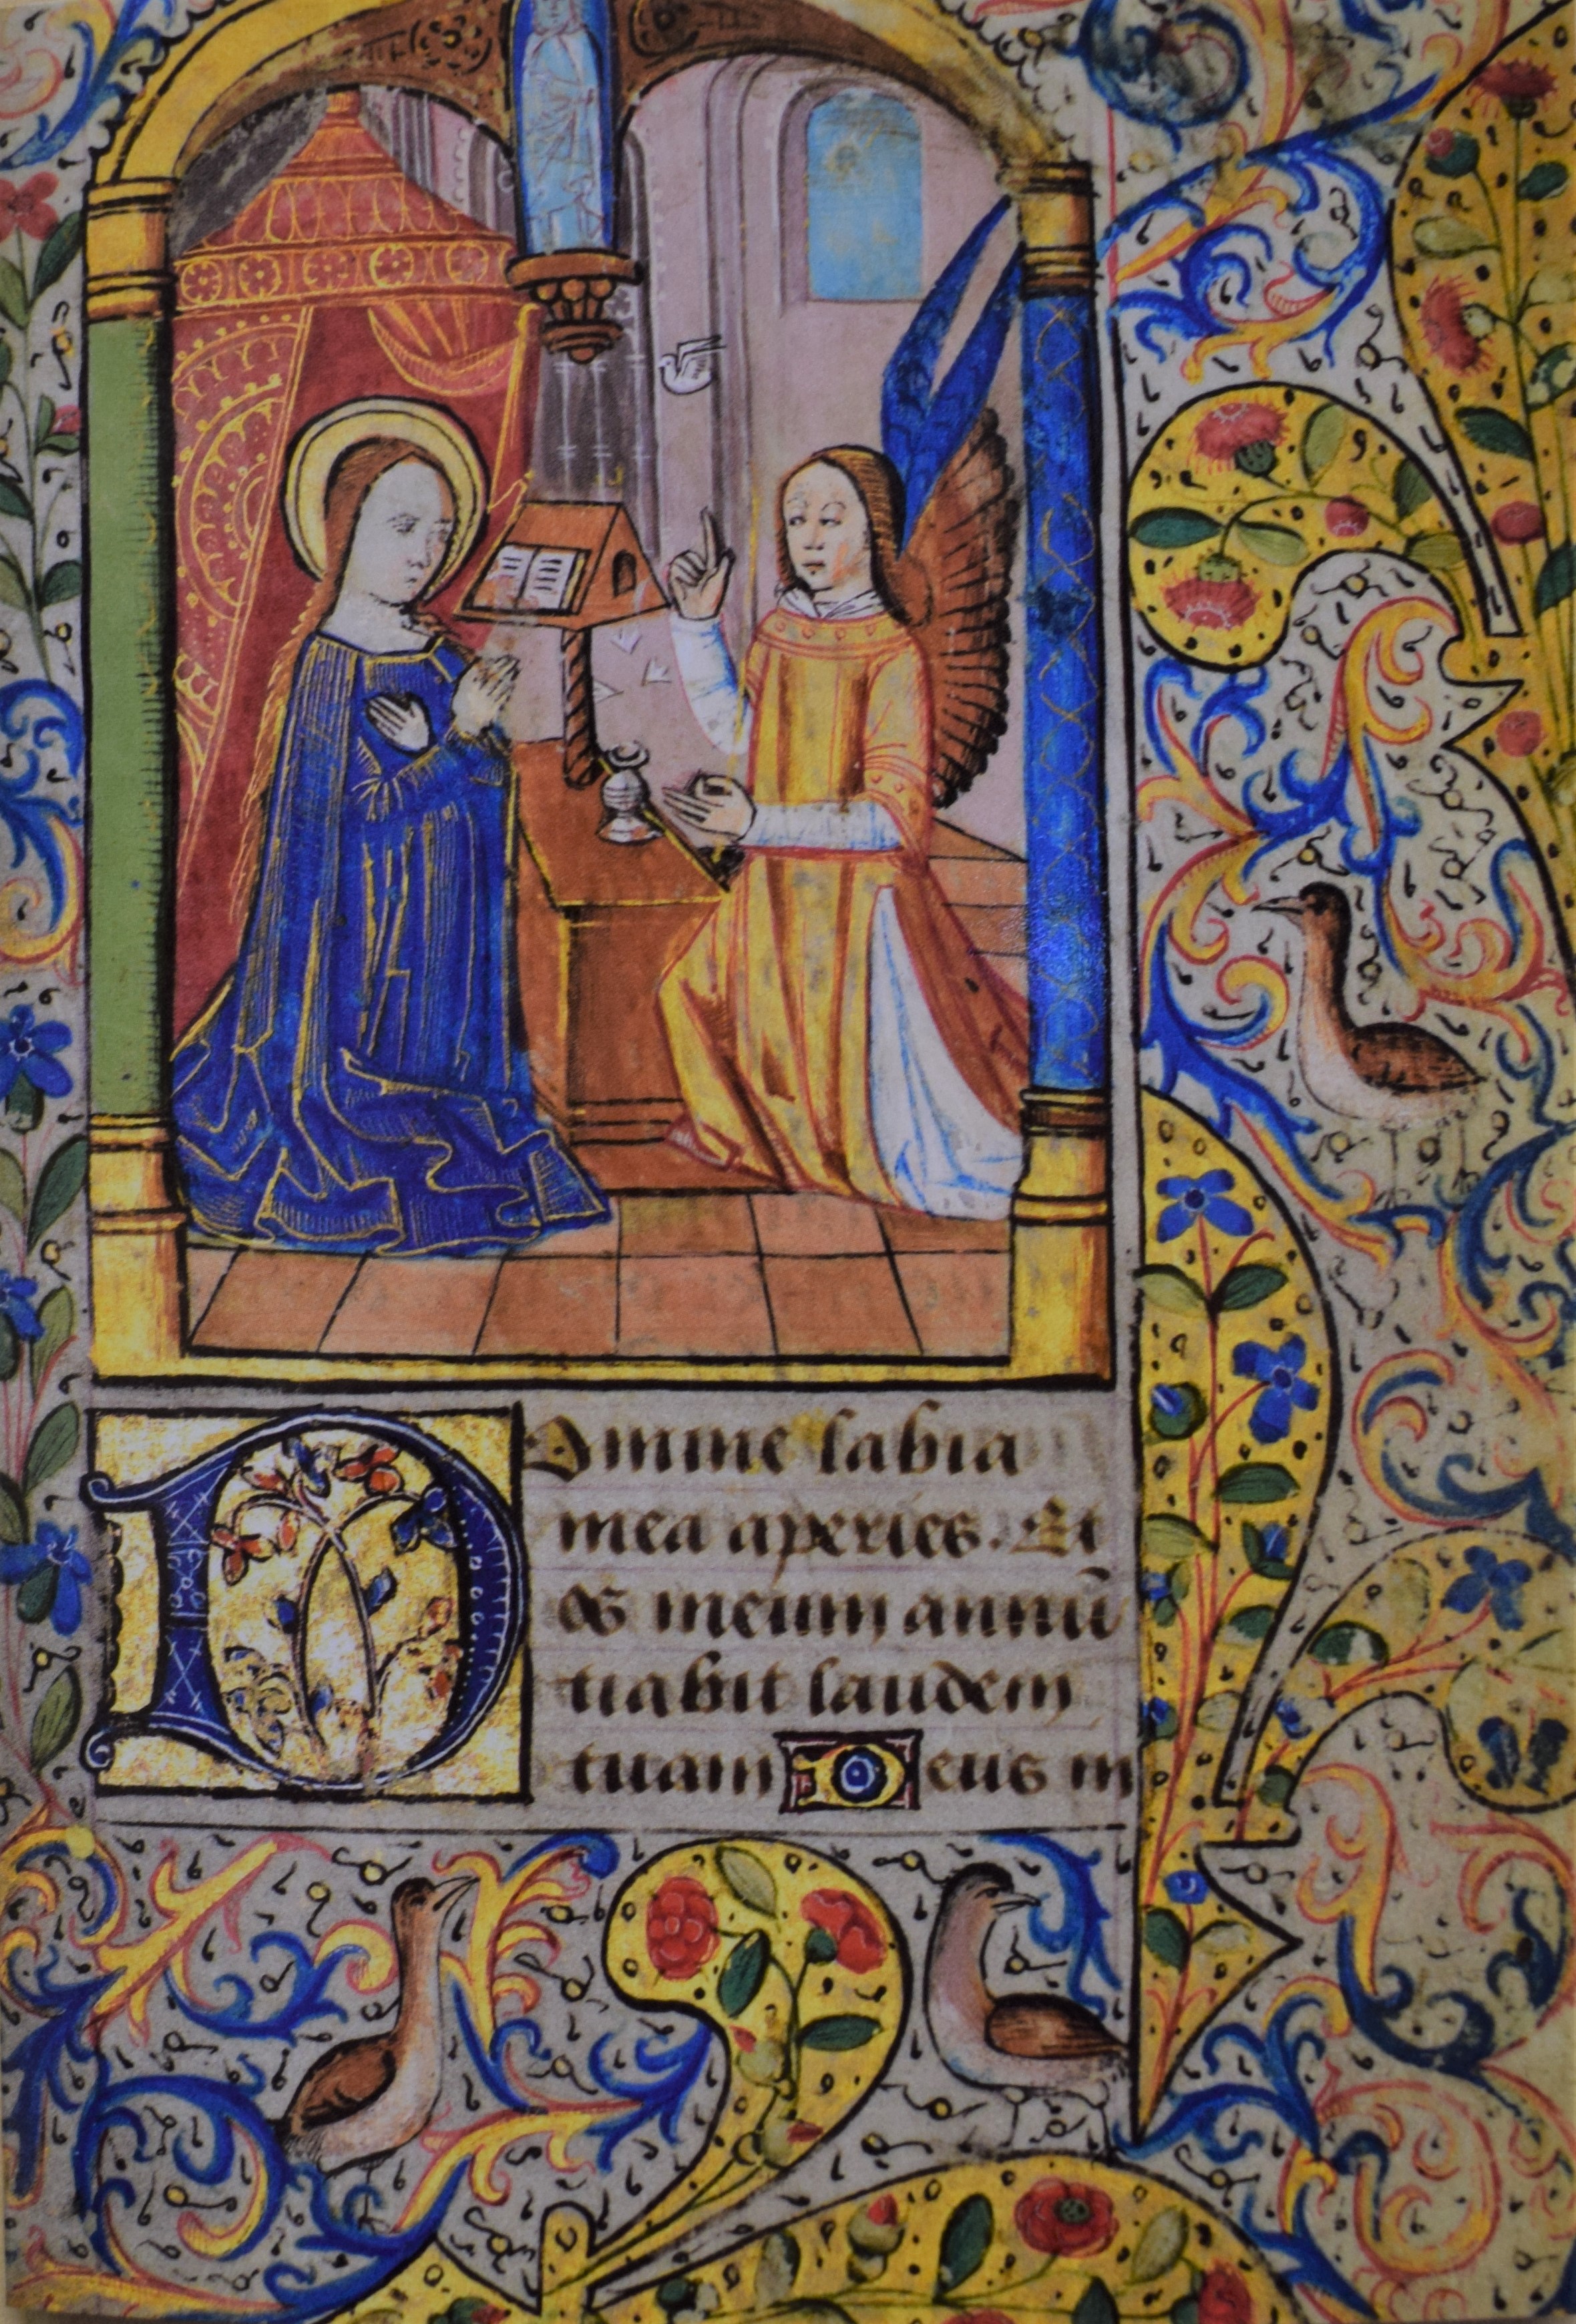 Domine labia
mea aperies. Et
os meum annũ
tiabit laudem
tuam Deus in